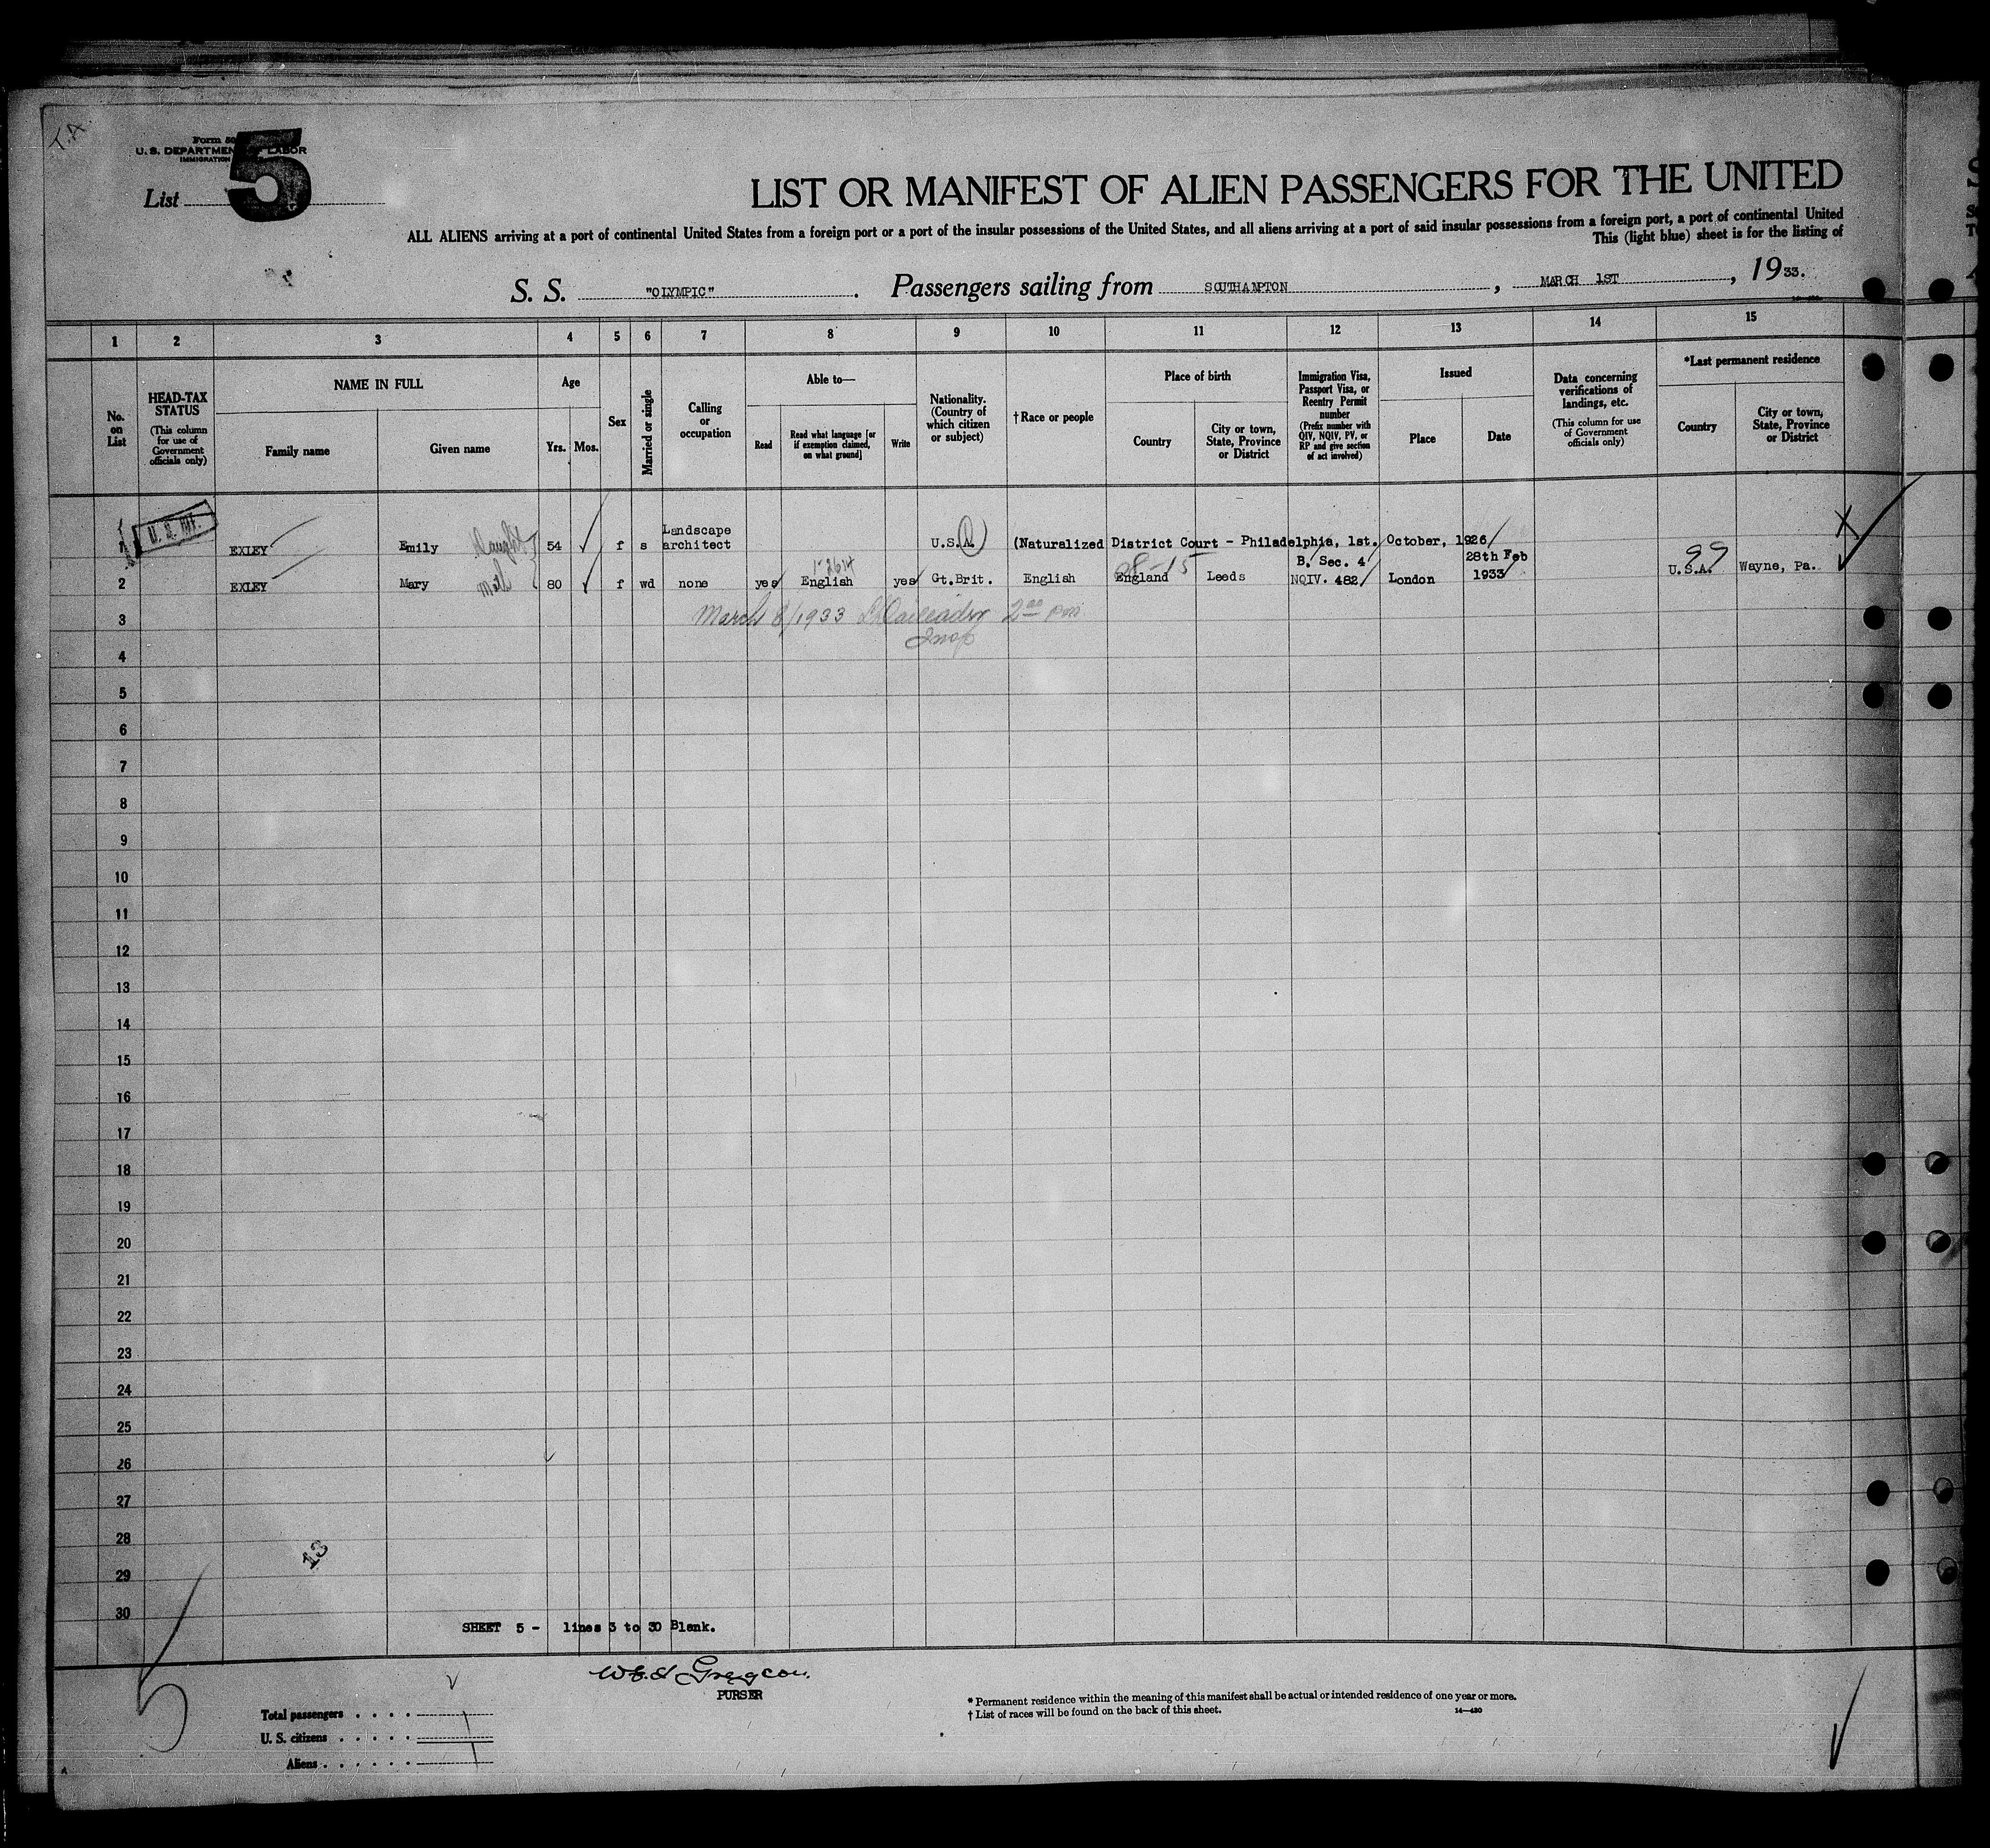 Form 50
U. S. DEPARTMENT LABOR
IMMIGRATION
List 5
LIST OR MANIFEST OF ALIEN PASSENGERS FOR THE UNITED
ALL ALIENS arriving at a port of continental United States from a foreign port or a port of the insular possessions of the United States, and all aliens arriving at a port of said insular possessions from a foreign port, a port of continental United
This (light blue) sheet is for the listing of
S. S. "OLYMPIC". Passengers sailing from SOUTHAMPTON, MARCH 1ST, 1933.
1 2 3 4 5 6 7 8 9 10 11 12 13 14 15
No. on List
HEAD-TAX STATUS
(This column for use of Government officials only)
NAME IN FULL
Family name
Given name
Age
Yrs. Mos.
Sex
Married or single
Calling or occupation
Able to—
Read
Read what language [or if exemption claimed, on what ground]
Write
Nationality. (Country of which citizen or subject)
† Race or people
Place of birth
Country
City or town, State, Province or District
Immigration Visa, Passport Visa, or Reentry Permit number
(Prefix number with QIV, NQIV, PV, or RP and give section of act involved)
Issued
Place
Date
Data concerning verifications of landings, etc.
(This column for use of Government officials only)
*Last permanent residence
Country
City or town, State, Province or District
1 EXLEY Emily Daught 54 f s Landscape architect U.S.A. (Naturalized District Court - Philadelphia, 1st. October, 1926
2 EXLEY Mary 80 f wd none yes English yes Gt.Brit. English England Leeds B. Sec. 4 NQIV. 482 London 28th Feb 1933 U.S.A. Wayne, Pa.
99
3 March 8/1933 2 00 pm
Insp
4
5
6
7
8
9
10
11
12
13
14
15
16
17
18
19
20
21
22
23
24
25
26
27
28
13
29
30
SHEET 5 - lines 3 to 30 Blank.
5
PURSER
Total passengers
U. S. citizens
Aliens
* Permanent residence within the meaning of this manifest shall be actual or intended residence of one year or more.
† List of races will be found on the back of this sheet.
14—430